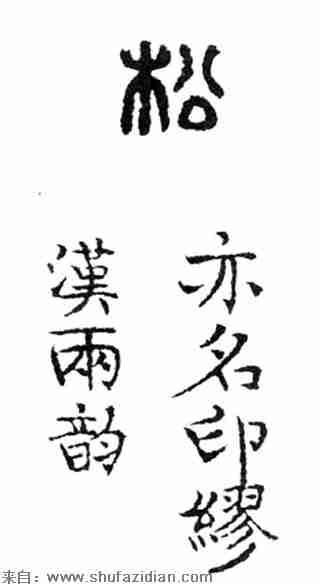 松
亦名印繆
漢兩韵
来自：www.shufazidian.com